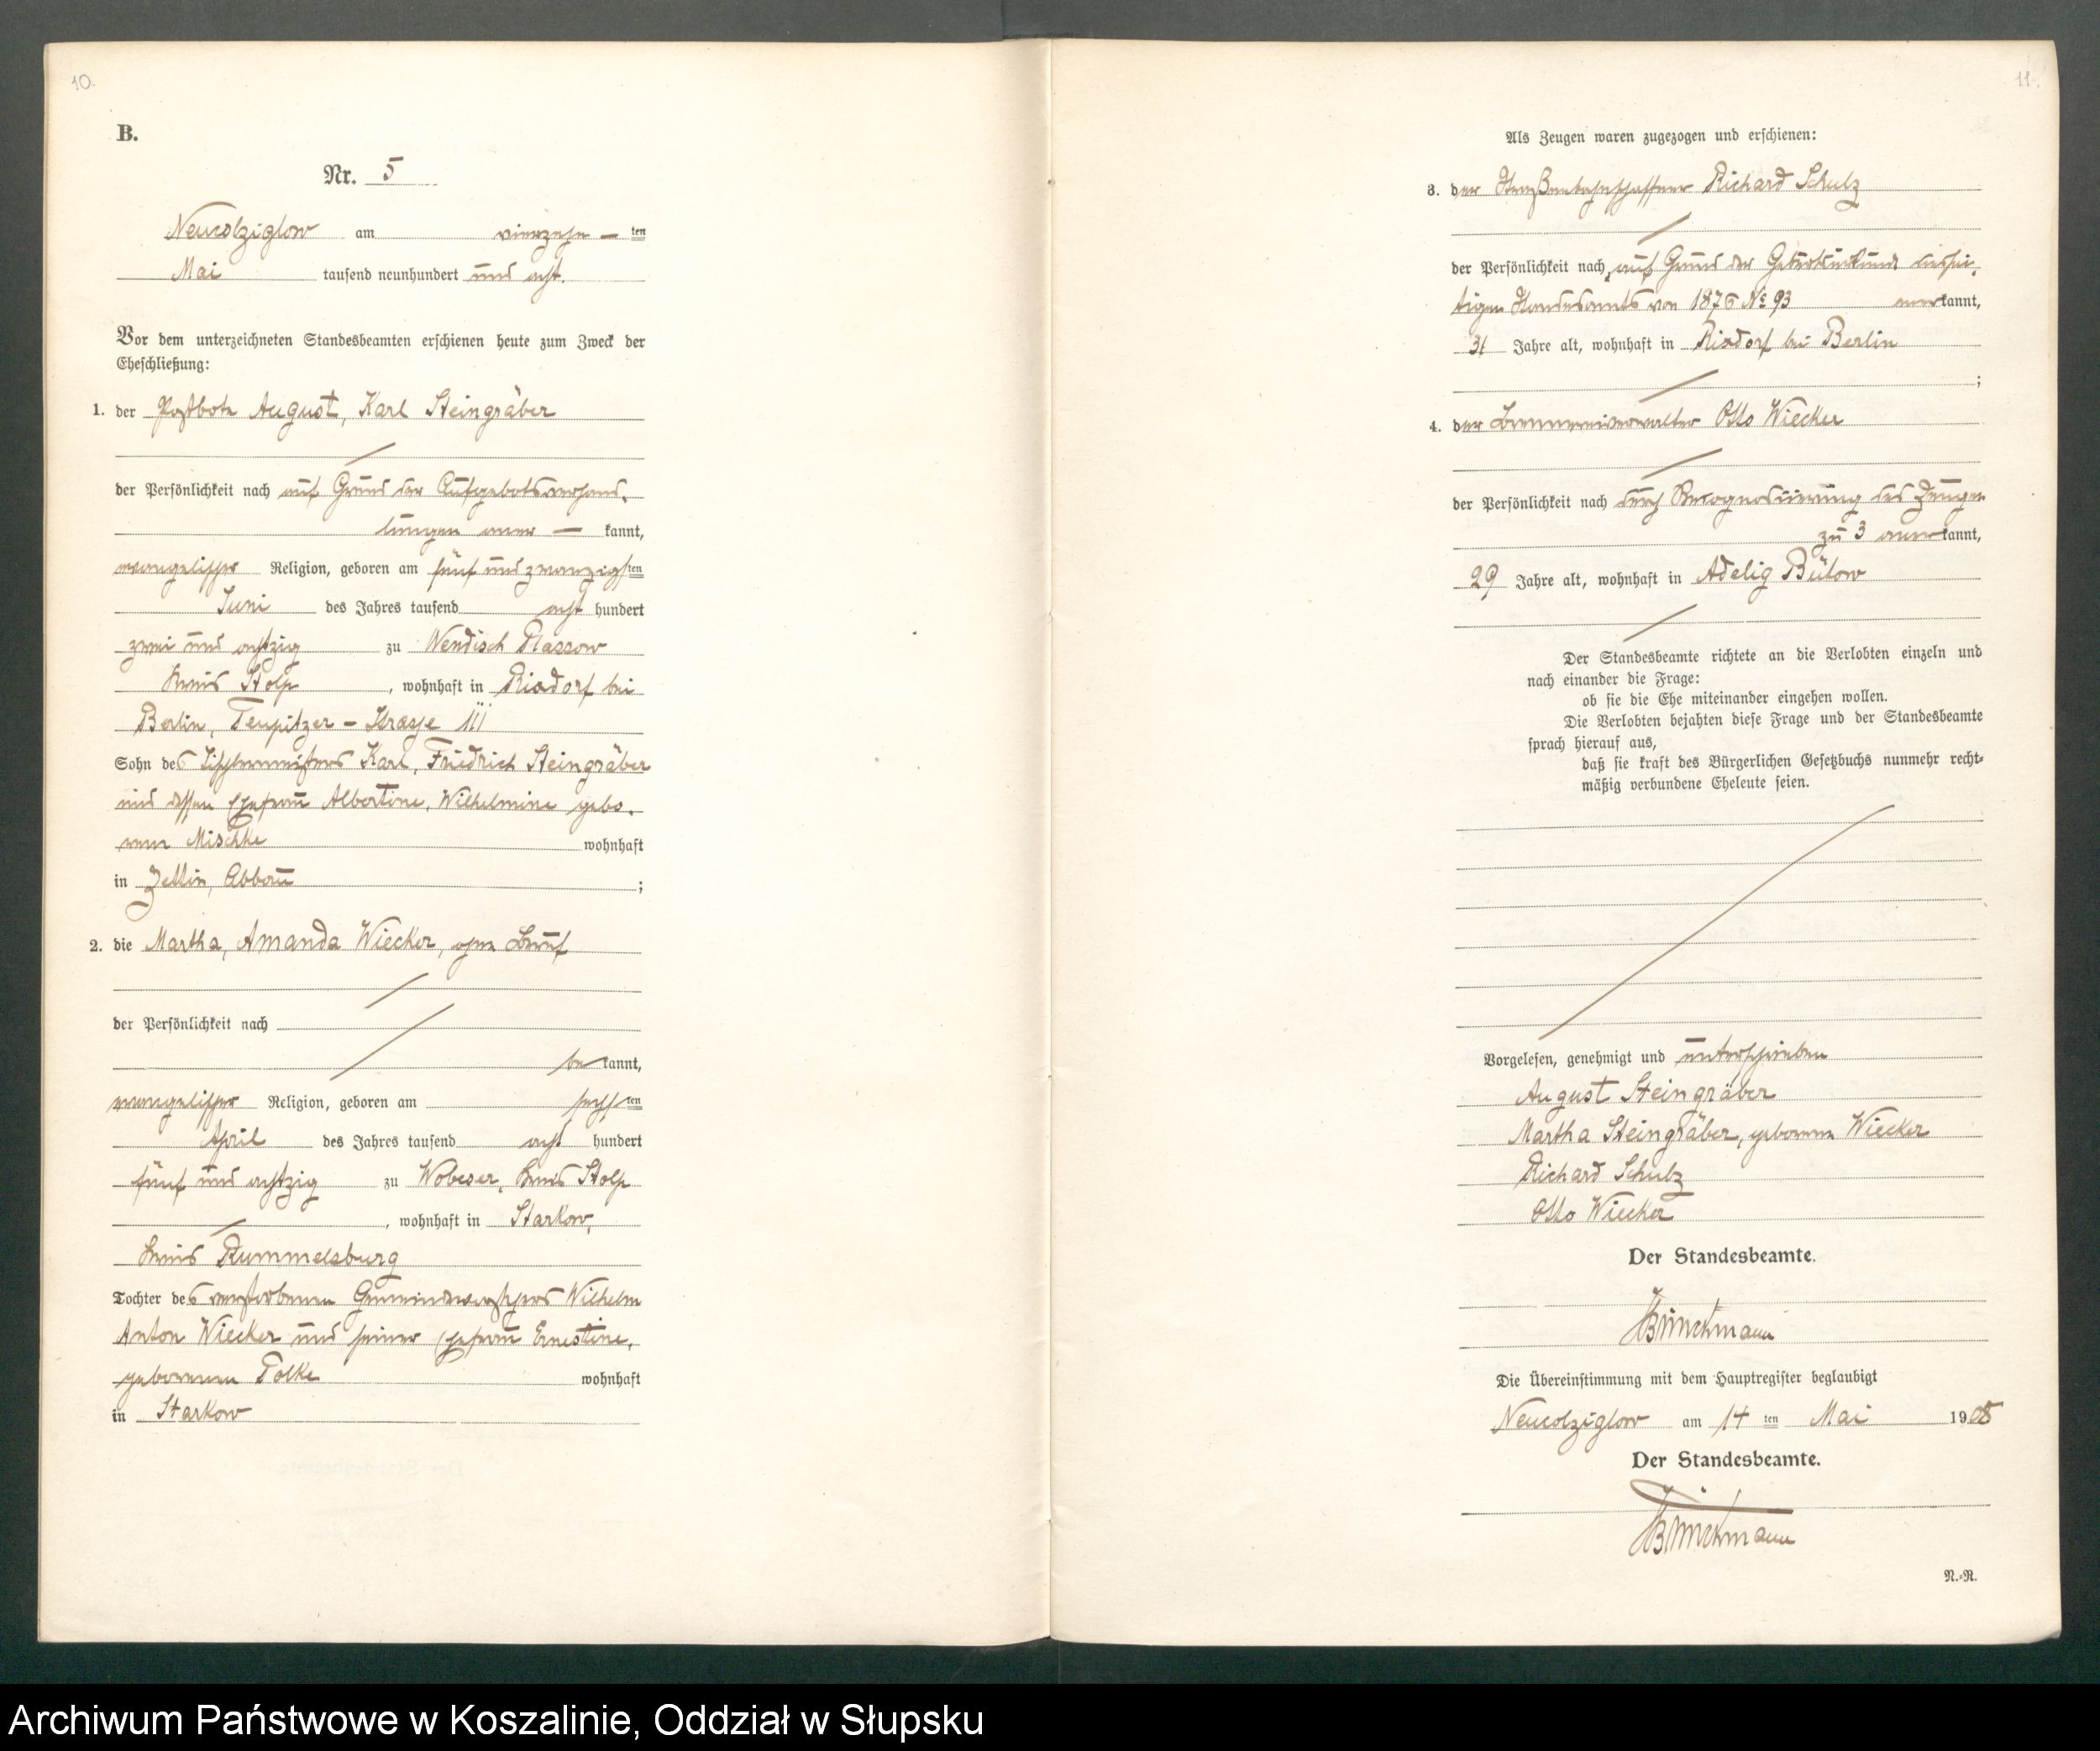 10.
B.
Nr. 5
Neukolziglow am vierzehn — ten
Mai tausend neunhundert und acht.
Vor dem unterzeichneten Standesbeamten erschienen heute zum Zweck der
Eheschließung:
1. der Postbote August, Karl Steingräber
der Persönlichkeit nach auf Grund der Aufgebotsverhand-
lungen aner — kannt,
evangelischer Religion, geboren am fünf und zwanzigsten
Juni des Jahres tausend acht hundert
zwei und achtzig zu Wendisch Plassow
Kreis Stolp, wohnhaft in Rixdorf bei
Berlin, Teupitzer-Strasse
Sohn des Tischlermeisters Karl, Friedrich Steingräber
und dessen Ehefrau Albertine, Wilhelmine gebo-
renen Mischke wohnhaft
in Zettin, Abbau ;
2. die Martha, Amanda Wiecker, ohne Beruf
der Persönlichkeit nach
be kannt,
evangelischer Religion, geboren am sechsten
April des Jahres tausend acht hundert
fünf und achtzig zu Wobeser, Kreis Stolp
, wohnhaft in Starkow,
Kreis Rummelsburg
Tochter des verstorbenen Gemeindevorstehers Wilhelm
Anton Wiecker und seiner Ehefrau Ernestine,
geborenen Polke wohnhaft
in Starkow
11.
Als Zeugen waren zugezogen und erschienen:
3. der Straßenbahnschaffner Richard Schulz
der Persönlichkeit nach auf Grund der Geburtsurkunde diessei-
tigen Standesamts von 1876 No 93 anerkannt,
31 Jahre alt, wohnhaft in Rixdorf bei Berlin
;
4. der Brennereiverwalter Otto Wiecker
der Persönlichkeit nach durch Recognoscierung des Zeugen
zu 3 anerkannt,
29 Jahre alt, wohnhaft in Adelig Bütow
Der Standesbeamte richtete an die Verlobten einzeln und
nach einander die Frage:
ob sie die Ehe miteinander eingehen wollen.
Die Verlobten bejahten diese Frage und der Standesbeamte
sprach hierauf aus,
daß sie kraft des Bürgerlichen Gesetzbuchs nunmehr recht-
mäßig verbundene Eheleute seien.
Vorgelesen, genehmigt und unterschrieben
August Steingräber
Martha Steingräber, geborene Wiecker
Richard Schulz
Otto Wiecker
Der Standesbeamte.
Brinckmann
Die Übereinstimmung mit dem Hauptregister beglaubigt
Neukolziglow am 14 ten Mai 1908
Der Standesbeamte.
Brinckmann
N.-R.
Archiwum Państwowe w Koszalinie, Oddział w Słupsku